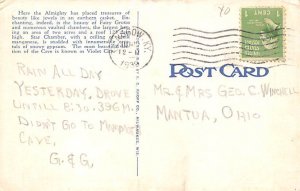 Here the Almighty has placed treasures of
beauty like jewels in an earthen casket. En-
chanting, indeed, is the beauty of Fairy Grotto
and numerous vaulted chambers, the largest hav-
ing an area of two acres and a roof
high. Star Chamber, with a ceiling of black
manganese, is studded with innumerable crys-
tals of snowy gypsum. The most beautiful sec-
tion of the Cave is known as Violet City.
40
KY.
CENT
POST CARD
RAIN ALL DAY
YESTERDAY, DROVE
UNTILL 8 P.O. 396 M.
DIDN'T GO TO MAMMOTH
CAVE,
G. & G,
MR. & MRS GEO. C. WINCHELL
MANTUA, OHIO